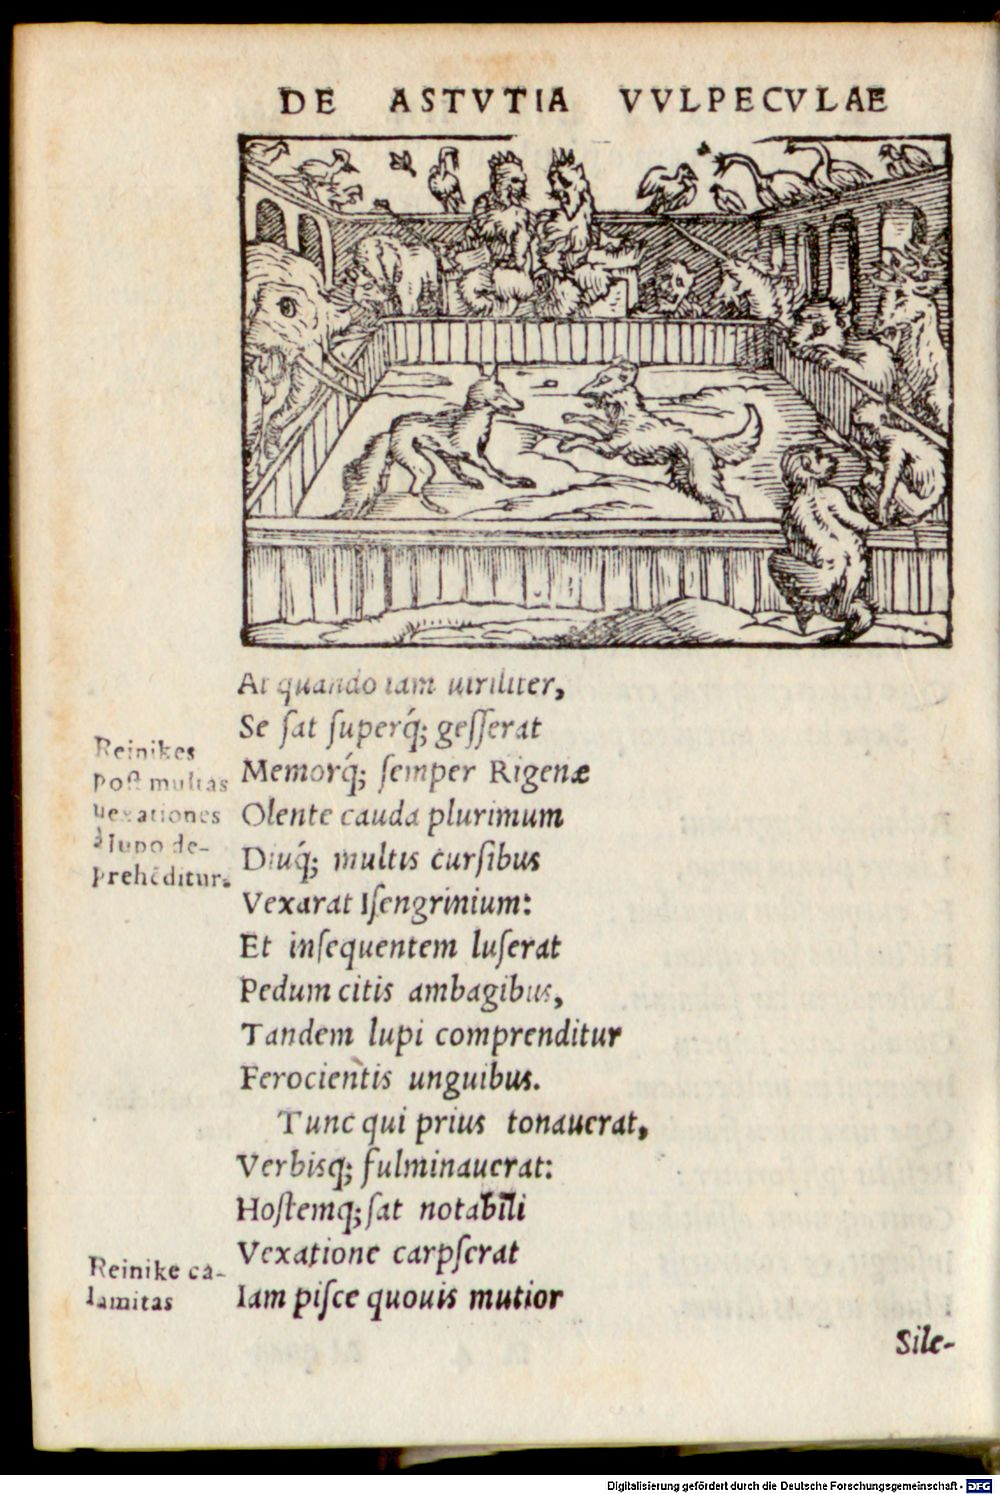 DE ASTVTIA VVLPECVLAE
At quando iam uiriliter,
Se ſat ſuperq́; geſſerat
Memorq́; ſemper Rigenæ
Olente cauda plurimum
Diuq́; multis curſibus
Vexarat Iſengrinium:
Et inſequentem luſerat
Pedum citis ambagibus,
Tandem lupi comprenditur
Ferocientis unguibus.
Tunc qui prius tonauerat,
Verbisq; fulminauerat:
Hoſtemq; ſat notabili
Vexatione carpſerat
Iam piſce quouis mutior
Sile-
Reinikes
poſt multas
uexationes
à lupo de-
prehēditur.
Reinike ca-
lamitas
Digitalisierung gefördert durch die Deutsche Forschungsgemeinschaft - DFG